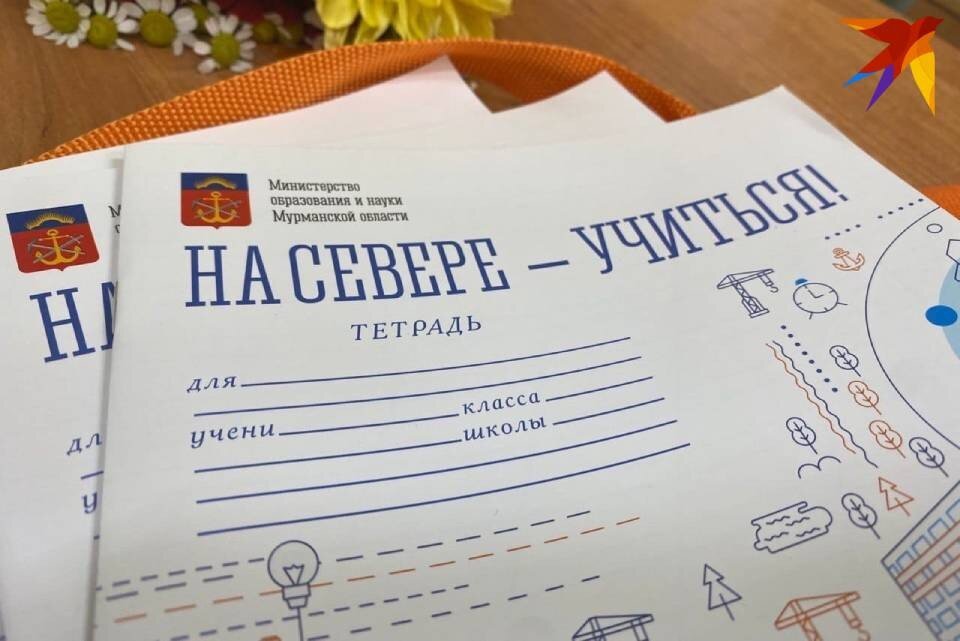 Министерство
образования и науки
Мурманской области
НА СЕВЕРЕ – УЧИТЬСЯ!
ТЕТРАДЬ
для
учени класса
школы
НА